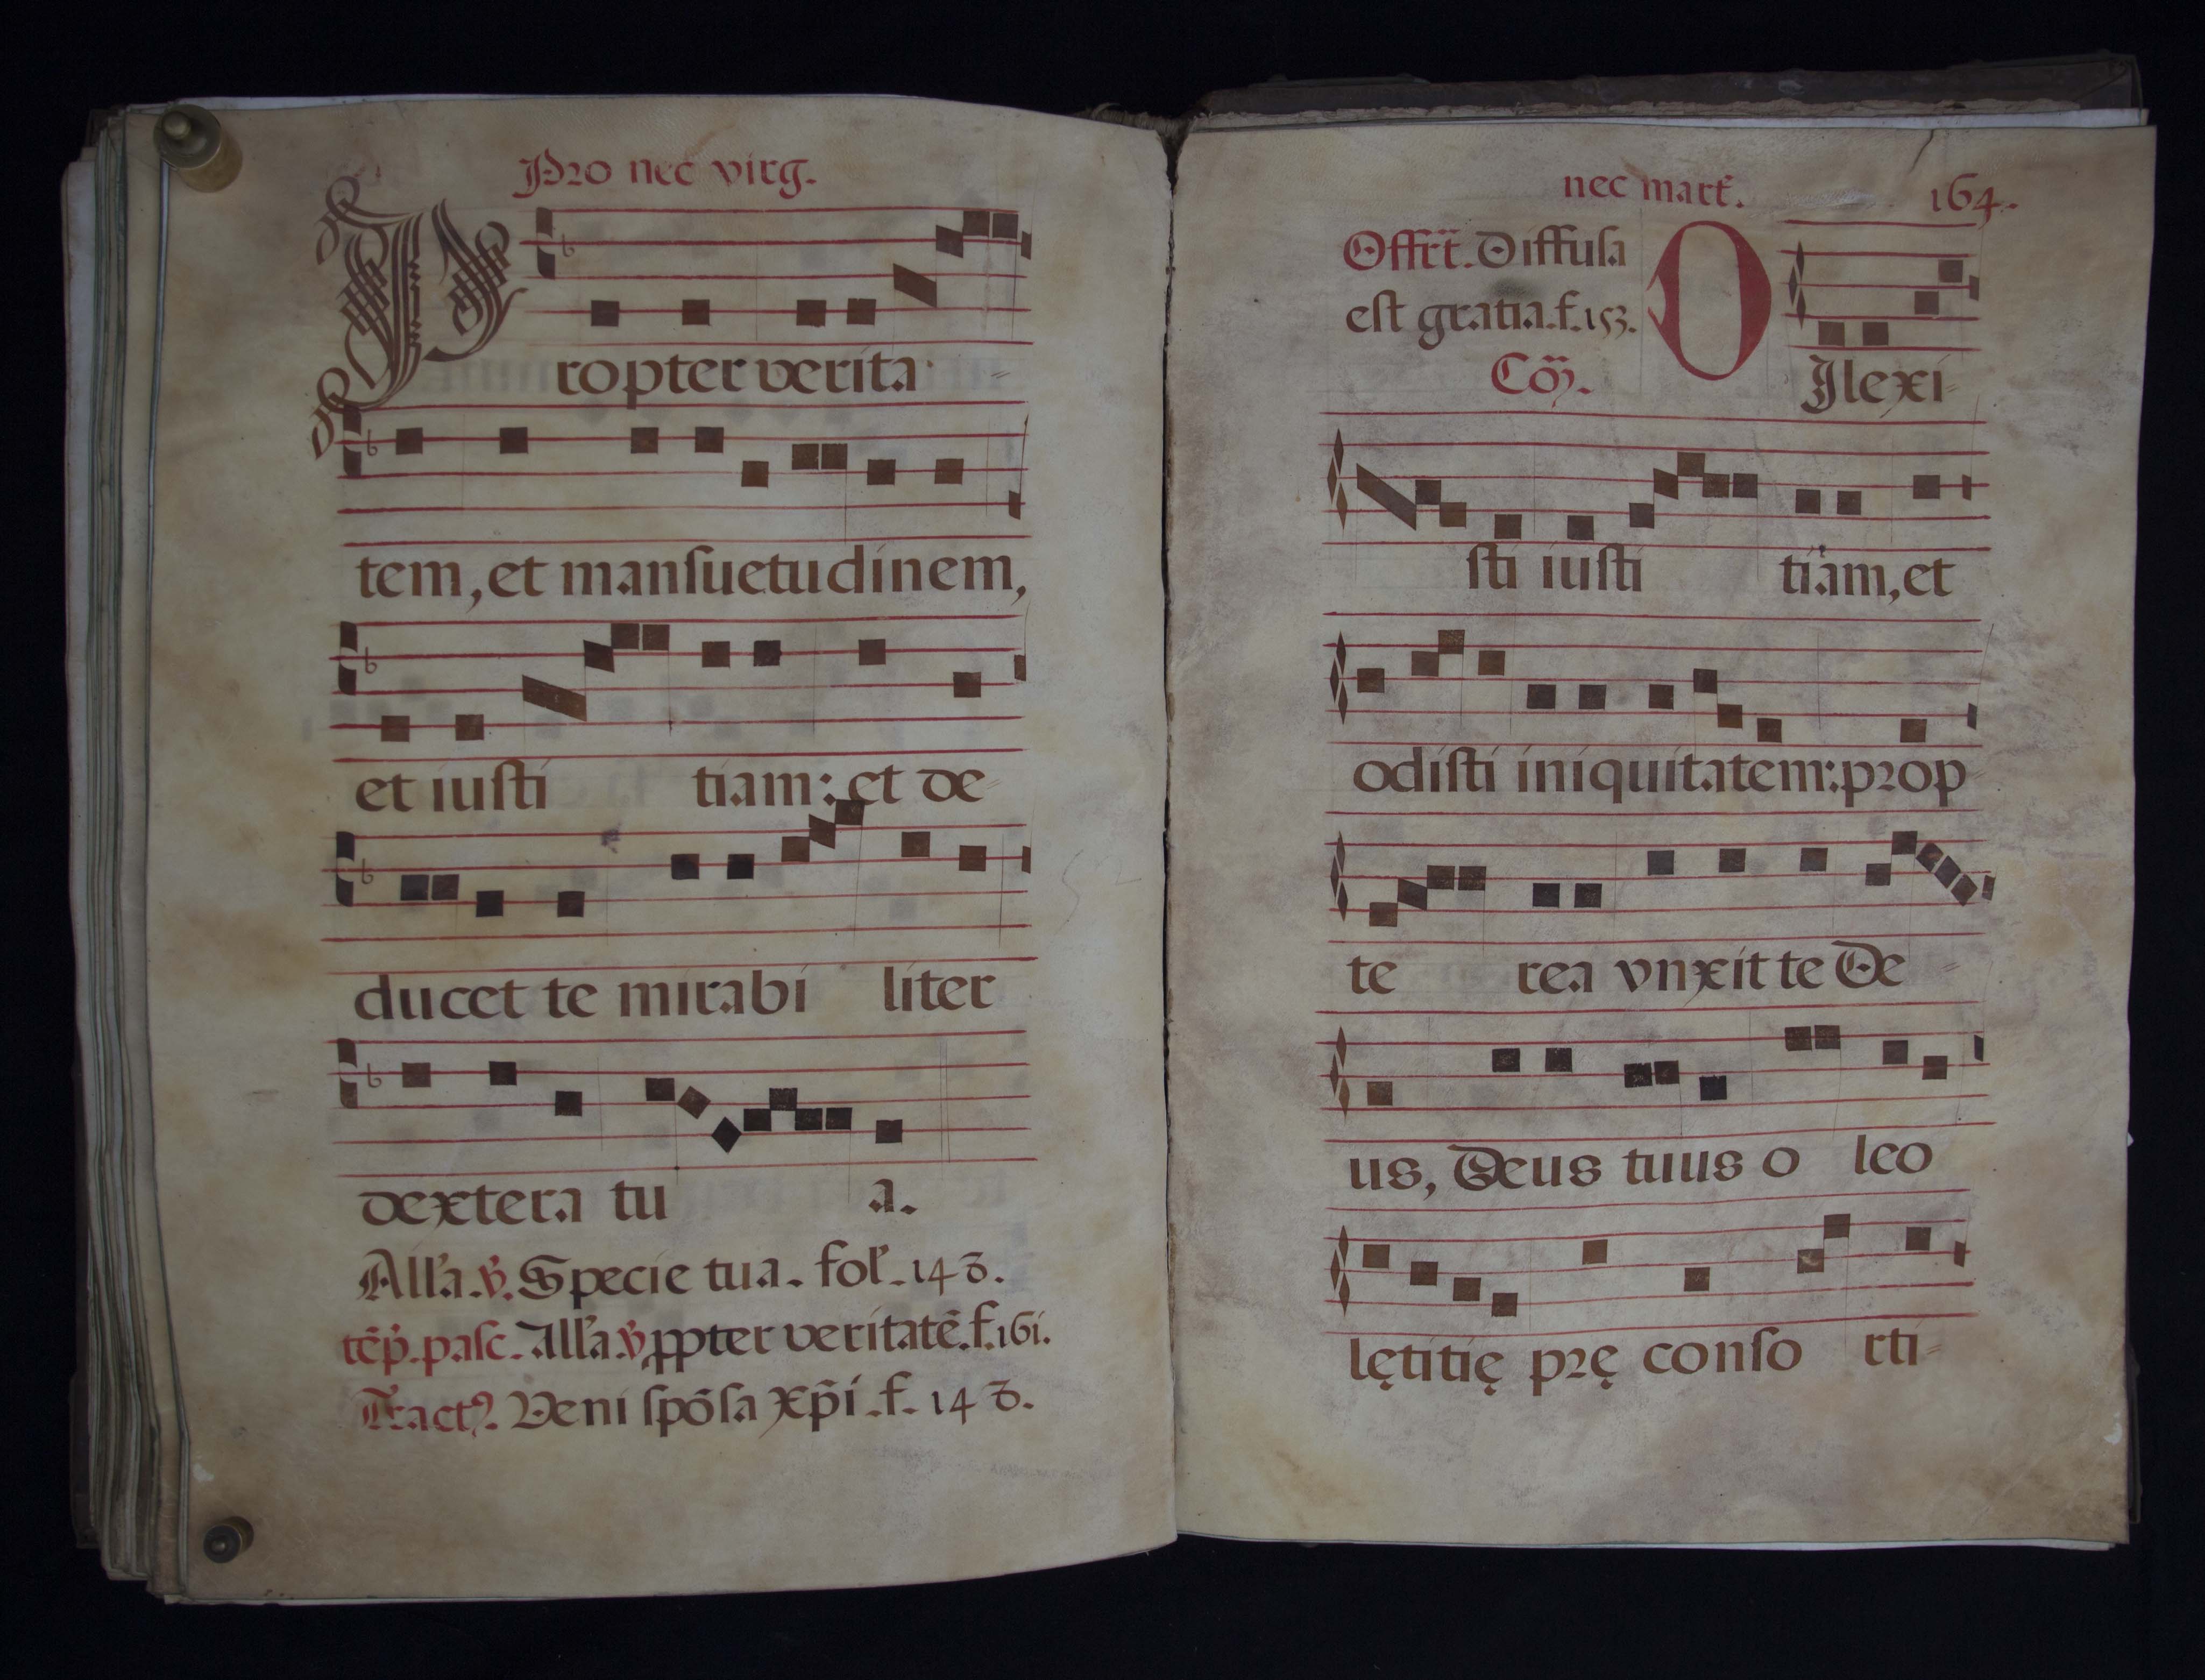 Pro nec virg.
Propter verita
tem, et mansuetudinem,
et iusti tiam: et de
ducet te mirabi liter
dextera tu a.
All'a. ꝟ. Specie tua. fol'. 148.
tẽp̃. pasc. All'a. ꝟ. ꝓpter veritatẽ. f. 161.
Tractꝰ. Veni spõsa xp̃i. f. 148.
nec mart̃. 164.
Offrt̃. Diffusa
est gratia. f. 153.
Cõ. DIlexi
sti iusti tiam, et
odisti iniquitatem: prop
te rea vnxit te De
us, Deus tuus o leo
lętitię prę conso rti